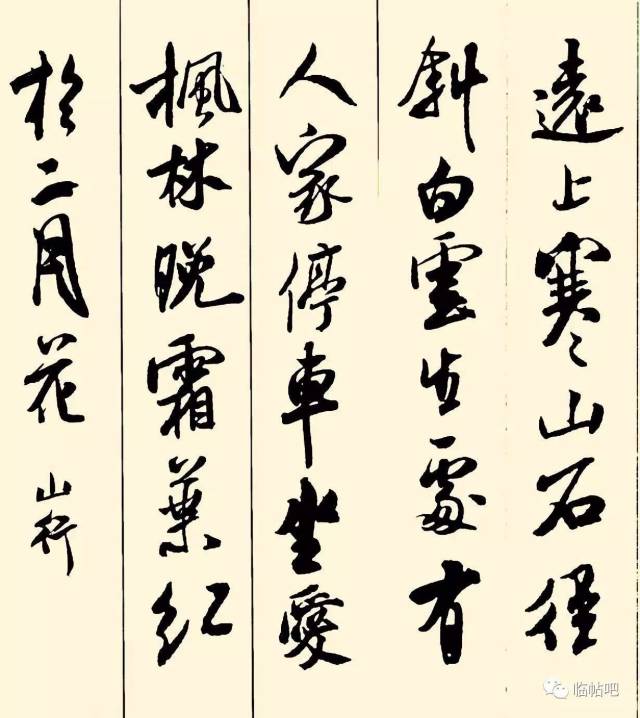 遠上寒山石徑
斜白雲生處有
人家停車坐愛
楓林晚霜葉紅
於二月花
山行
临帖吧